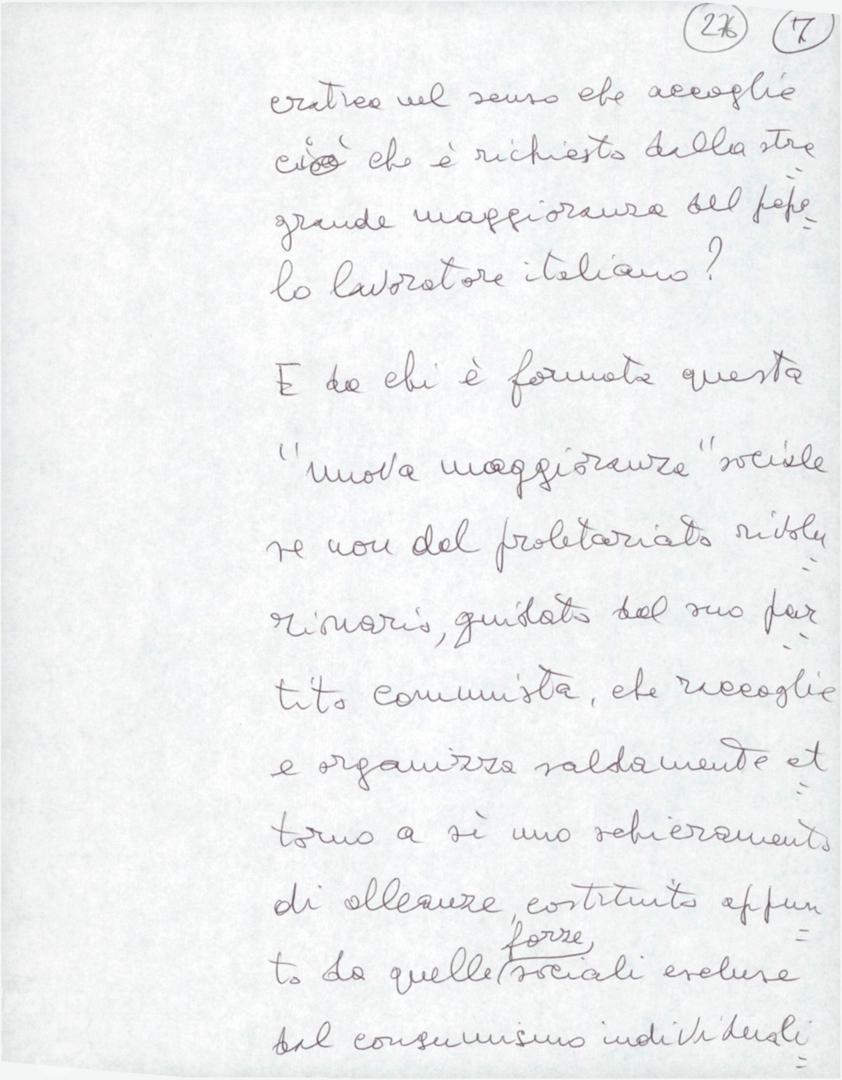 276 7
cratica nel senso che accoglie
ciò che è richiesto dalla stra=
grande maggioranza del popo=
lo lavoratore italiano?
E da chi è formata questa
"nuova maggioranza" sociale
se non dal proletariato rivolu=
zionario, guidato dal suo par=
tito comunista, che raccoglie
e organizza saldamente at=
torno a sè uno schieramento
di alleanze, costituito appun=
to da quelle forze sociali escluse
dal consumismo individuali=